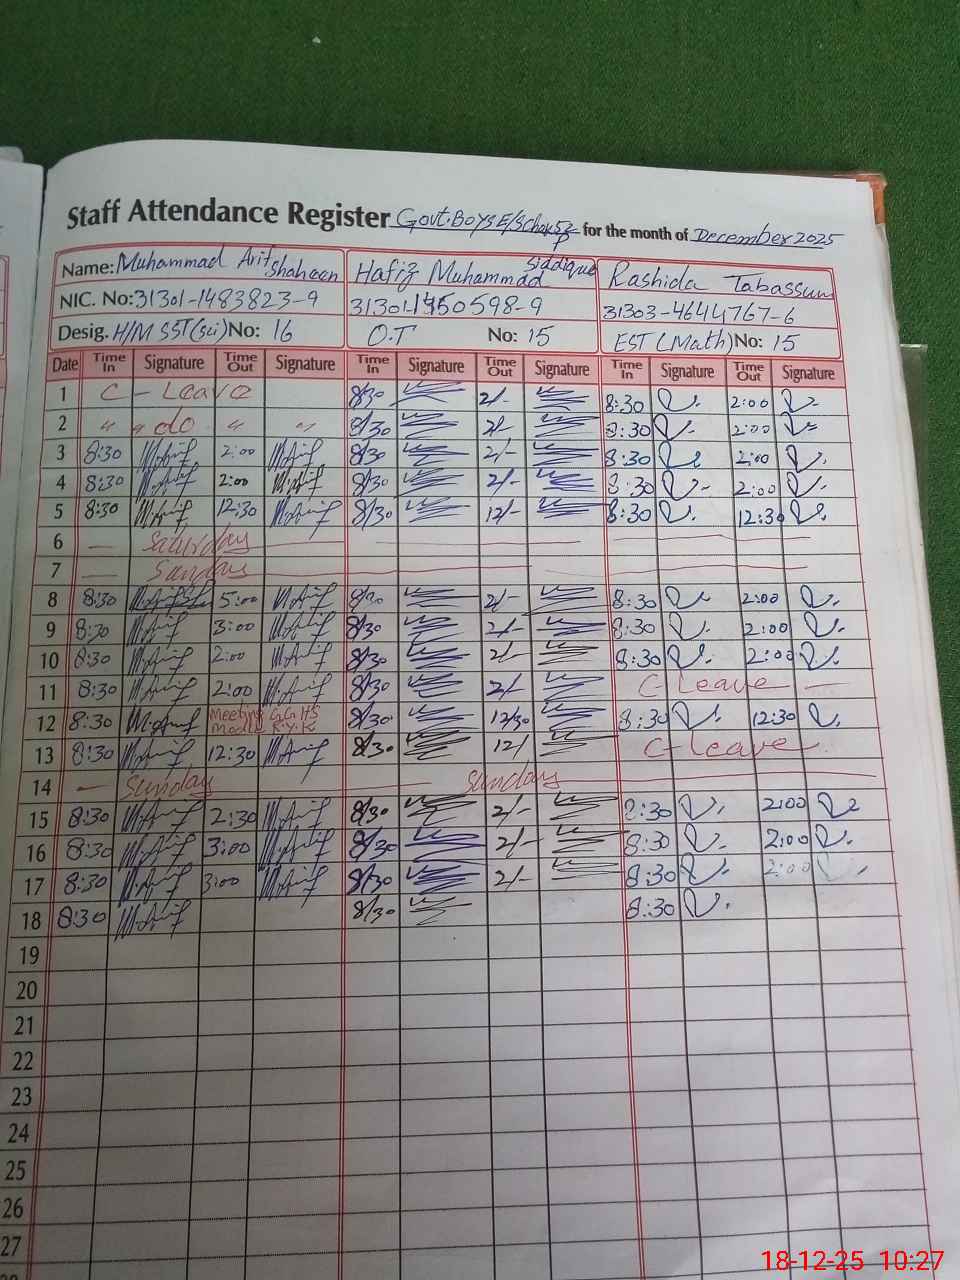 Staff Attendance Register Govt.Boys E/School 52/P for the month of December 2025
Name: Muhammad Arif Shaheen Hafiz Muhammad Siddique Rashida Tabassum
NIC. No: 31301-1483823-9 31301-1450598-9 31303-4644767-6
Desig. H/M SST (Sci) No: 16 O.T No: 15 EST (Math) No: 15
Date Time In Signature Time Out Signature Time In Signature Time Out Signature Time In Signature Time Out Signature
1 C - Leave 8/30 2/- 8:30 2:00
2 " " do " " 8/30 2/- 8:30 2:00
3 8:30 M.Arif 2:00 M.Arif 8/30 2/- 8:30 2:00
4 8:30 M.Arif 2:00 M.Arif 8/30 2/- 8:30 2:00
5 8:30 M.Arif 12:30 M.Arif 8/30 12/- 8:30 12:30
6 — Saturday
7 — Sunday
8 8:30 M.Arif 5:00 M.Arif 8/30 2/- 8:30 2:00
9 8:30 M.Arif 3:00 M.Arif 8/30 2/- 8:30 2:00
10 8:30 M.Arif 2:00 M.Arif 8/30 2/- 8:30 2:00
11 8:30 M.Arif 2:00 M.Arif 8/30 2/- C-Leave —
12 8:30 M.Arif Meeting G.G.H.S 8/30 12/30 8:30 12:30
Model R.Y.K
13 8:30 M.Arif 12:30 M.Arif 8/30 12/ C-Leave
14 — Sunday — Sunday
15 8:30 M.Arif 2:30 M.Arif 8/30 2/- 8:30 2:00
16 8:30 M.Arif 3:00 M.Arif 8/30 2/- 8:30 2:00
17 8:30 M.Arif 3:00 M.Arif 8/30 2/- 8:30 2:00
18 8:30 M.Arif 8/30 8:30
19
20
21
22
23
24
25
26
27
18-12-25 10:27